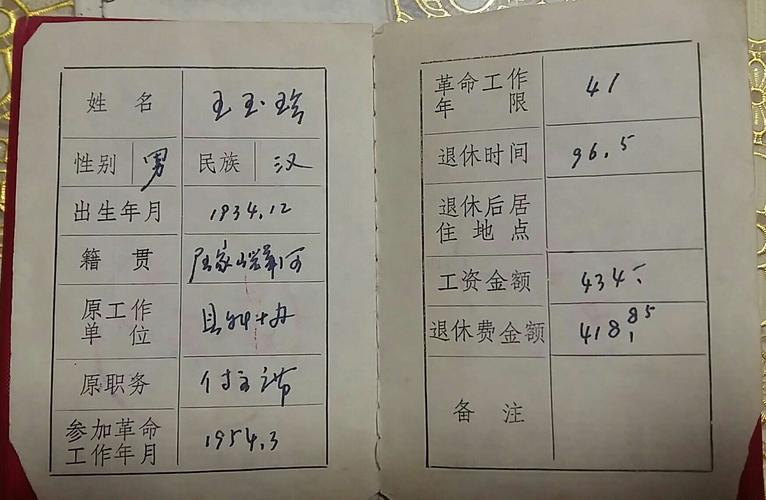 姓名 王玉珍
性别 男 民族 汉
出生年月 1934.12
籍贯
原工作
单位
原职务 付主席
参加革命
工作年月 1954.3
革命工作
年限 41
退休时间 96.5
退休后居
住地点
工资金额 434.
退休费金额 418.85
备注